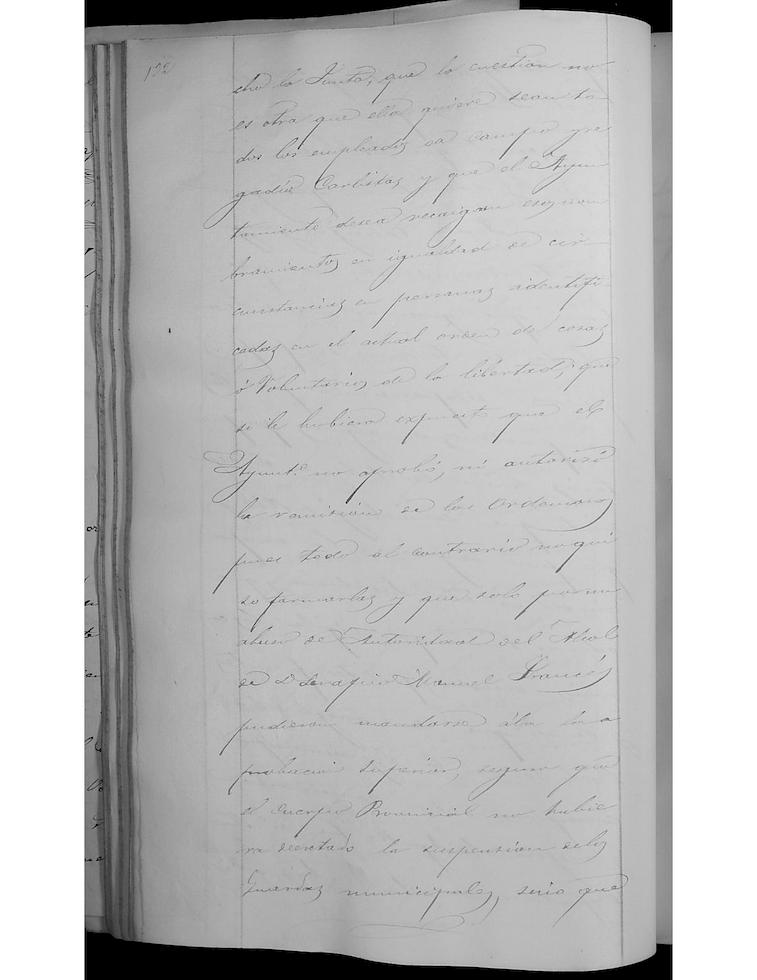 132
cho la Junta, que la cuestion no
es otra que ella quiere sean to
dos los empleados de campo y re
gadio Carlistas y que el Ayun
tamiento desea recaigan esos nom
bramientos en igualdad de cir
cunstancias en personas identifi
cadas en el actual orden de cosas
ó Voluntarios de la libertad, que
si le hubiera expuesto que el
Ayunt.º no aprobó, ni autorizó
la remision de las Ordenanzas
pues todo al contrario no qui
so formarlas y que solo por un
abuso de Autoridad del Alcal
de D. Serafin Manuel Francés
pudieron mandarse á la a
probacion superior, seguro que
el Cuerpo Provincial no hubie
ra decretado la suspension de los
Guardas municipales, sino que